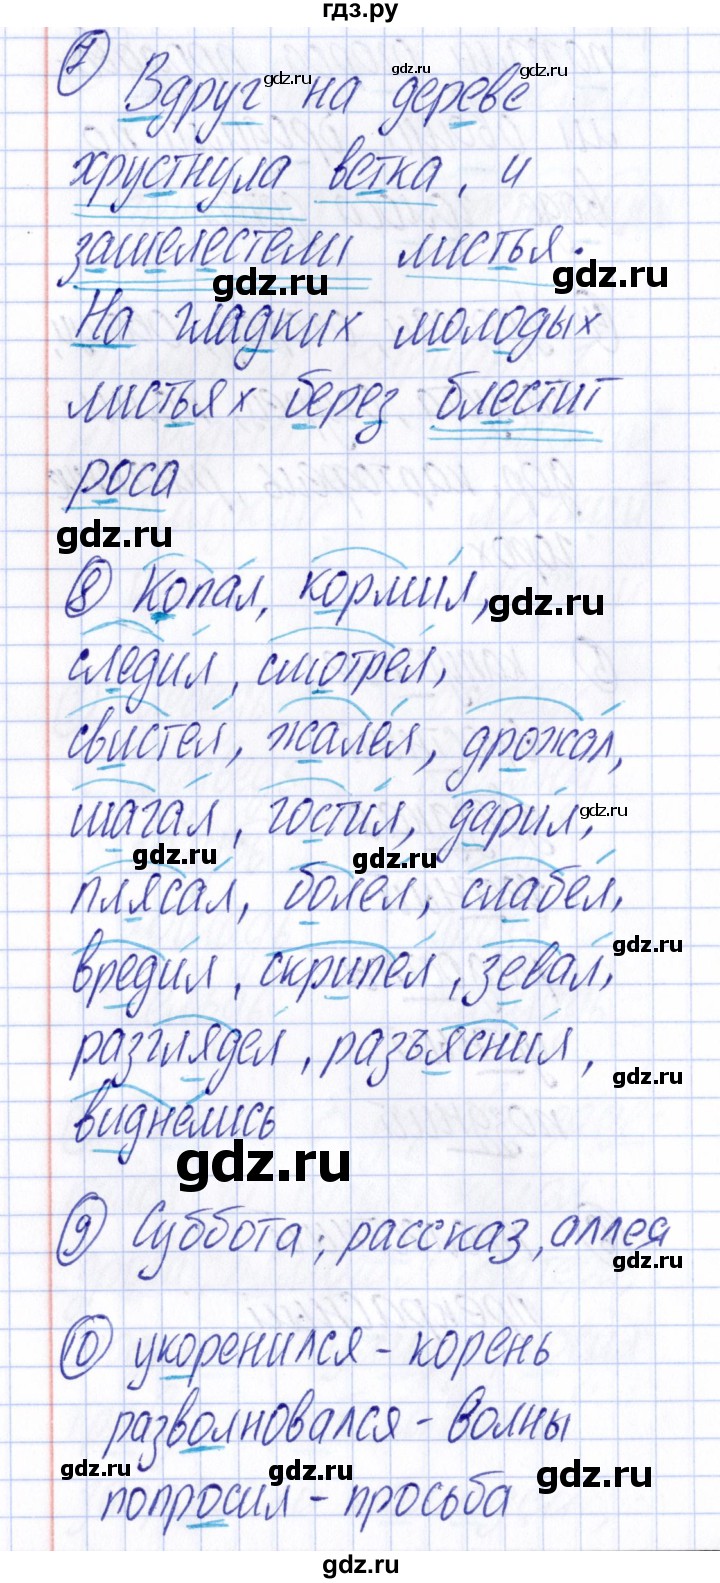 гдз.ру
7 Вдруг на дереве
gdz.ru gdz.ru gdz.ru
хрустнула ветка, и
зашелестели листья.
gdz.ru gdz.ru
На гладких молодых
листьях берез блестит
роса
gdz.ru
8 Копал, кормил,
gdz.ru
следил, смотрел,
свистел, жалел, дрожал,
шагал, гостил, дарил,
gdz.ru
gdz.ru gdz.ru
плясал, болел, слабел,
gdz.ru
вредил, скрипел, зевал,
разглядел, разъяснил,
gdz.ru
виднелись
gdz.ru
9 Суббота, рассказ, аллея
gdz.ru
10 укоренился - корень
разволновался - волны
gdz.ru gdz.ru gdz.ru
попросил - просьба
gdz.ru